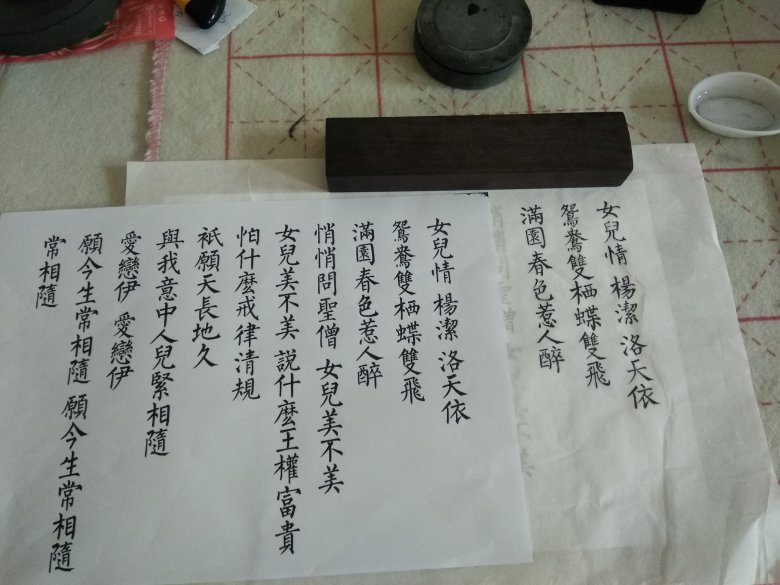 女兒情 楊潔 洛天依
鴛鴦雙栖蝶雙飛
滿園春色惹人醉
悄悄問聖僧 女兒美不美
女兒美不美 說什麼王權富貴
怕什麼戒律清規
衹願天長地久
與我意中人兒緊相隨
愛戀伊 愛戀伊
願今生常相隨 願今生常相隨
常相隨
女兒情 楊潔 洛天依
鴛鴦雙栖蝶雙飛
滿園春色惹人醉
悄悄問聖僧